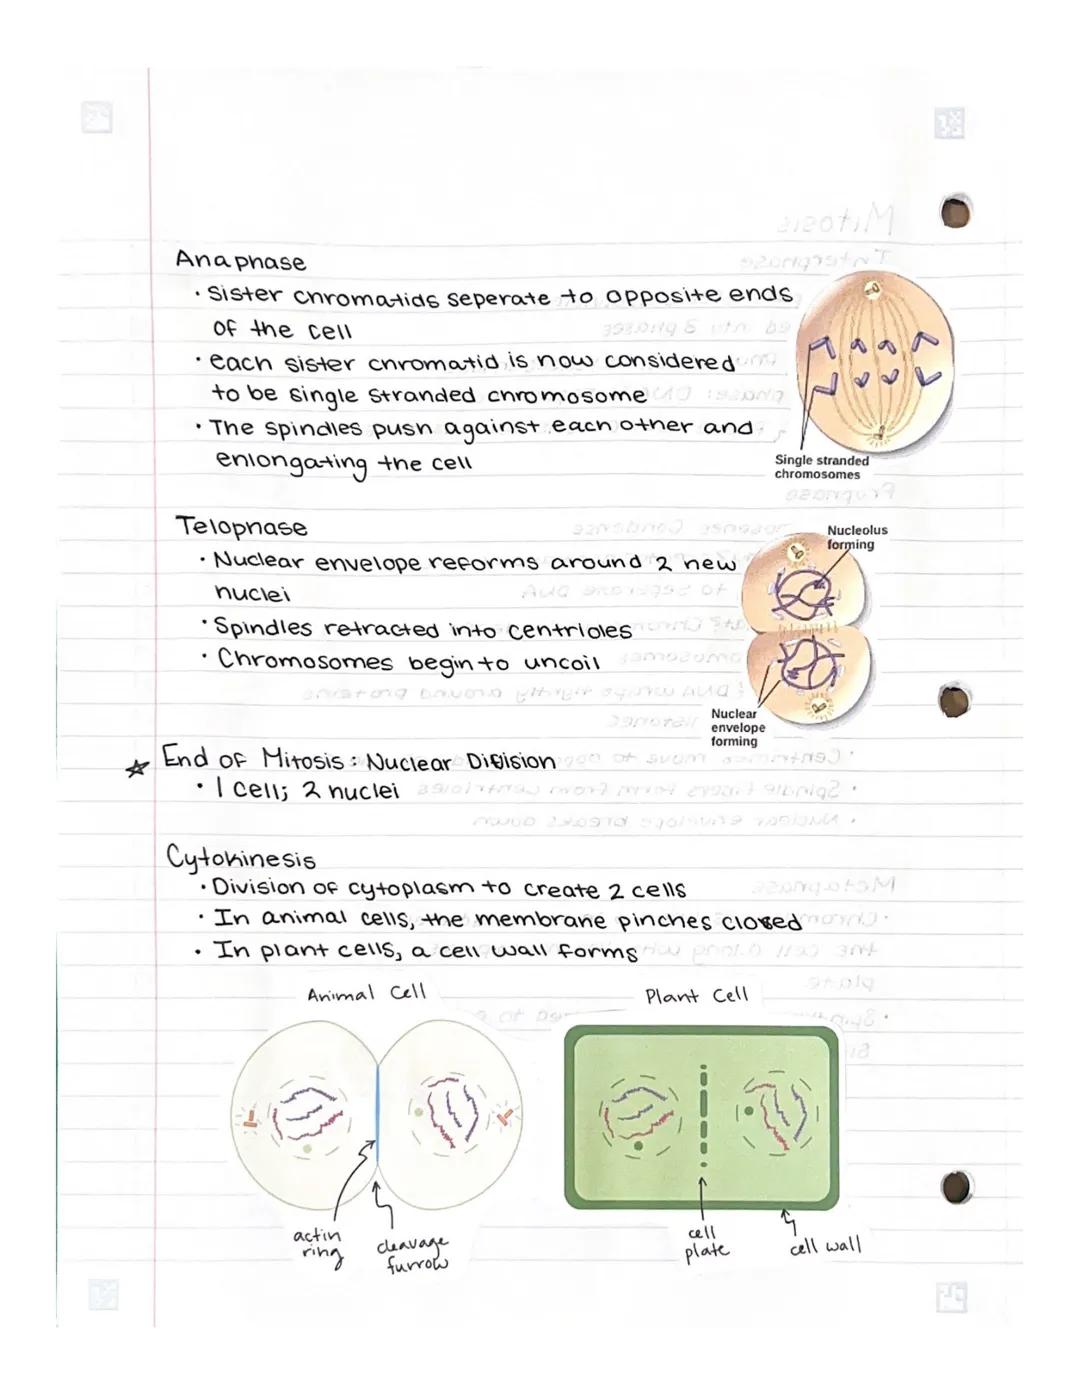 Anaphase
· Sister chromatids seperate to opposite ends
of the cell
· each sister chromatid is now considered
to be single stranded chromosome
· The spindles push against each other and
enlongating the cell
Single stranded
chromosomes
Telophase
· Nuclear envelope reforms around 2 new
nuclei
· Spindles retracted into centrioles
· Chromosomes begin to uncoil
Nucleolus
forming
Nuclear
envelope
forming
☆ End of Mitosis: Nuclear Division
· 1 cell; 2 nuclei
Cytokinesis
· Division of cytoplasm to create 2 cells
· In animal cells, the membrane pinches closed
· In plant cells, a cell wall forms
Animal Cell
Plant Cell
actin
ring
cleavage
furrow
cell
plate
cell wall